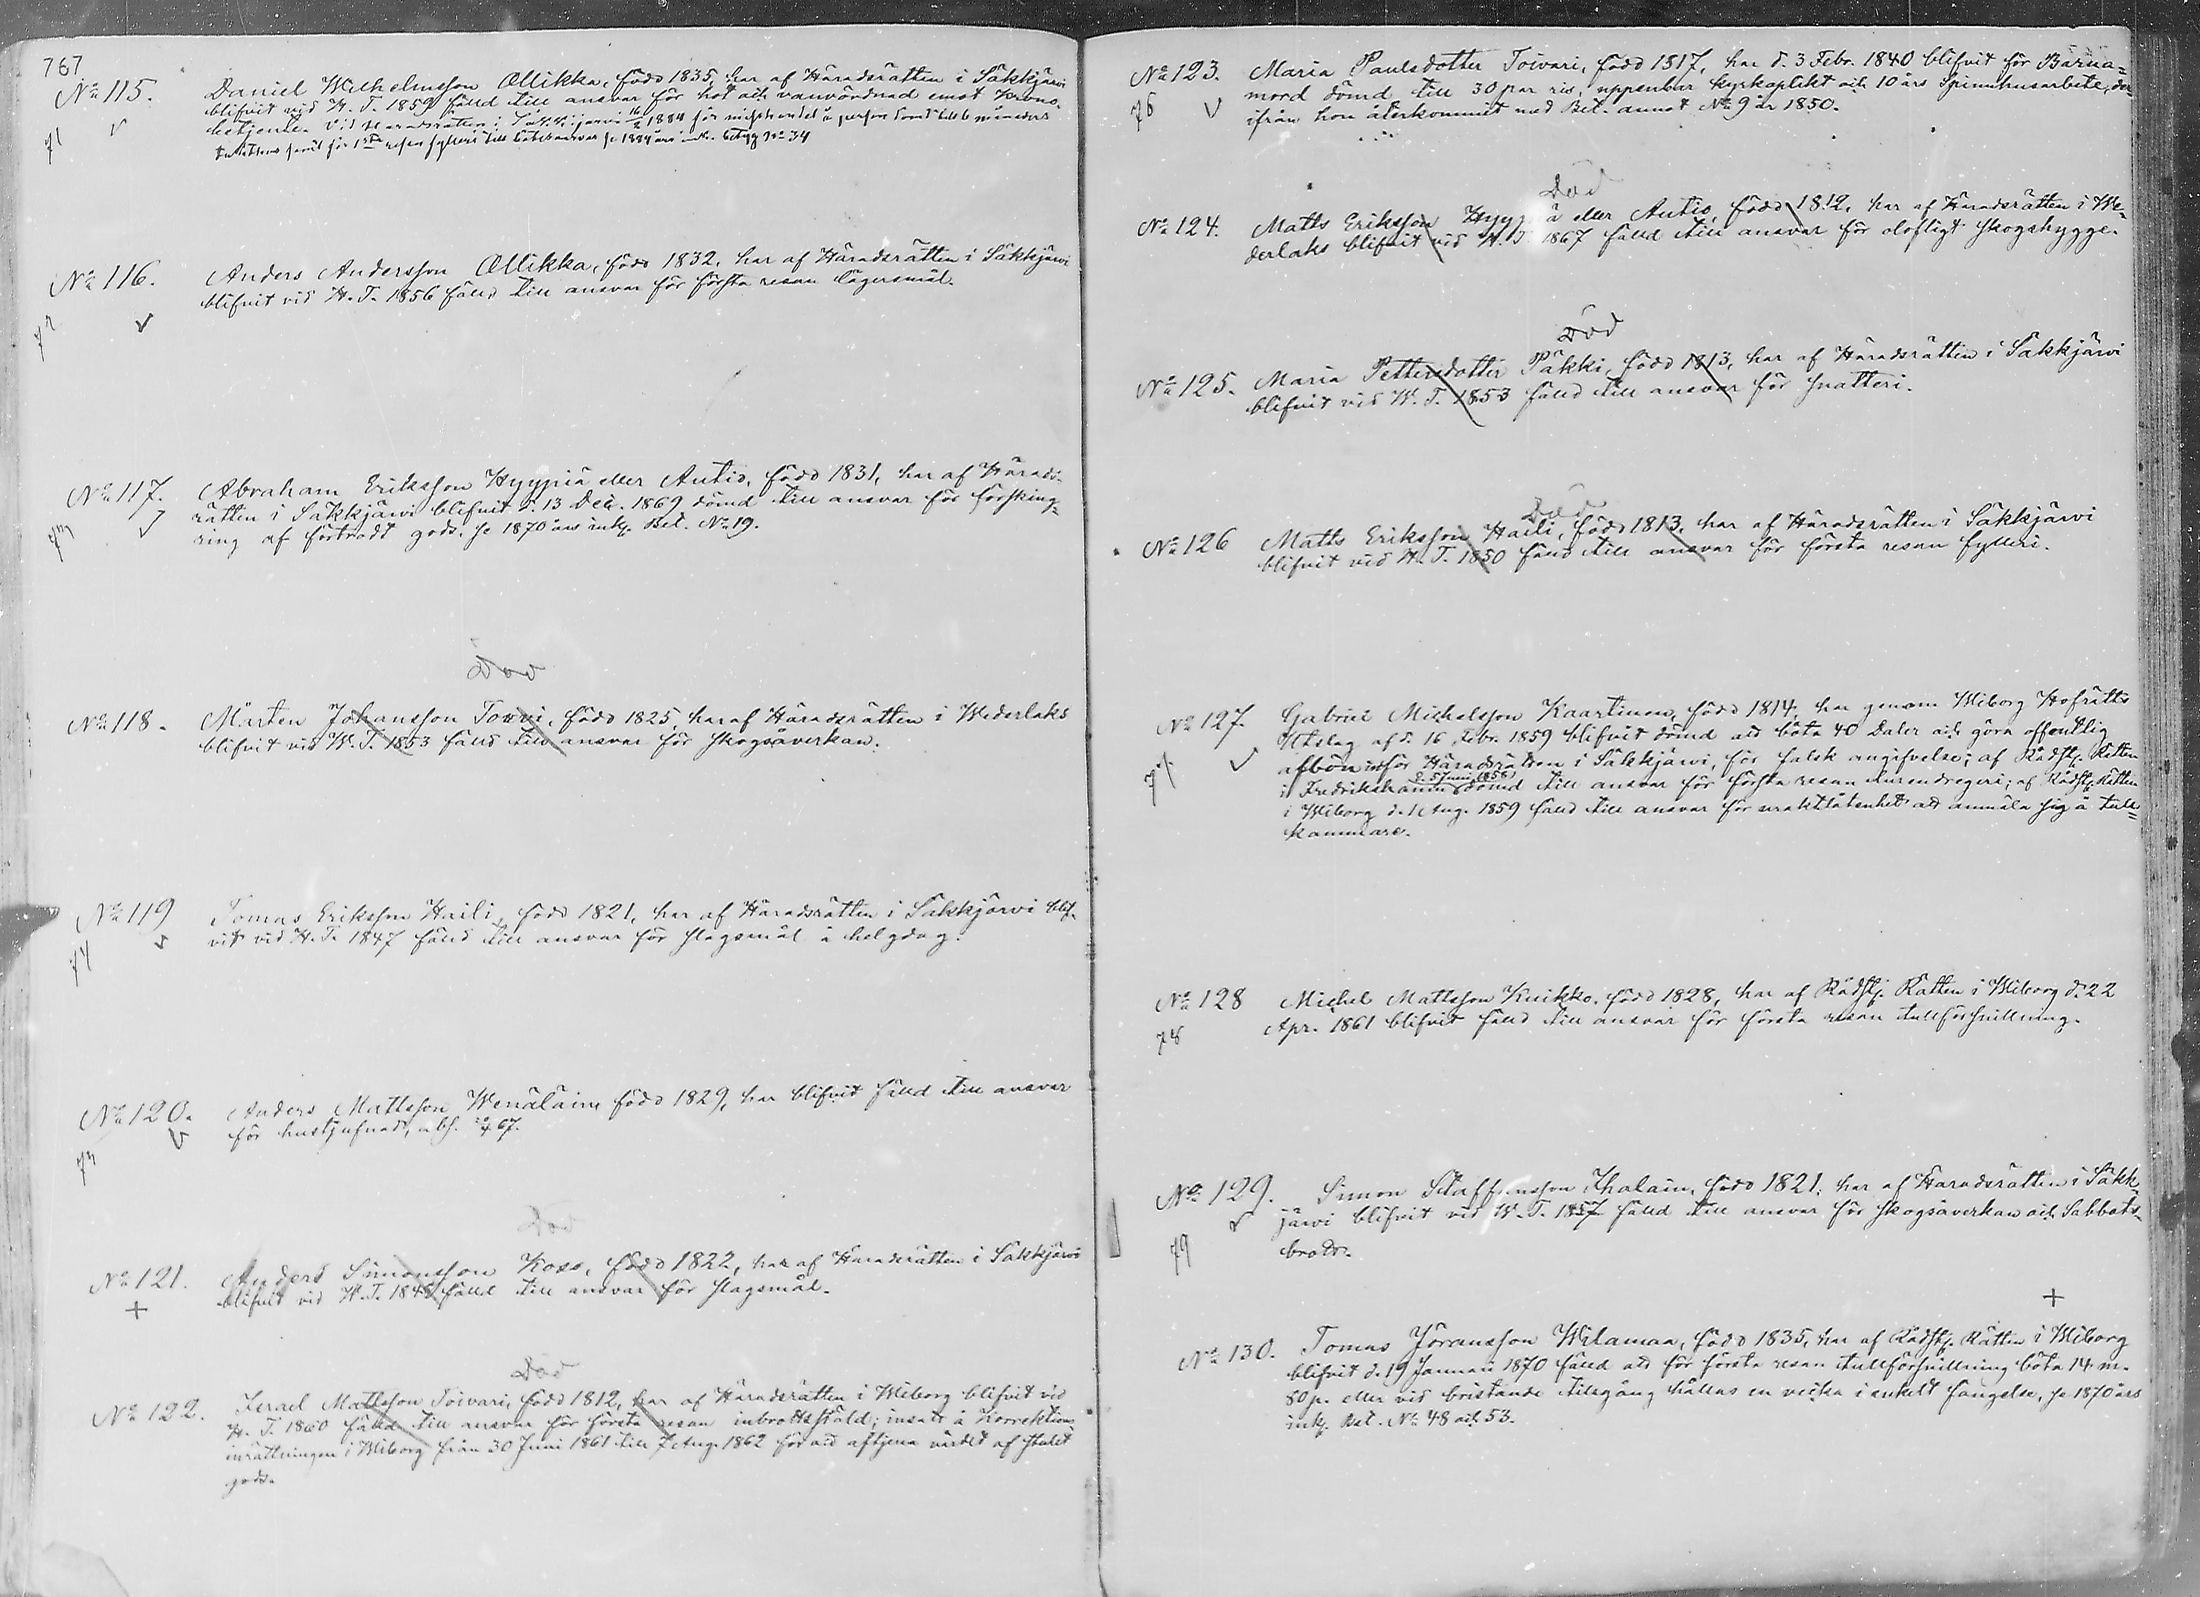 767
No 115. Daniel Wilhelmsson Ollikka, född 1835, har af Häradsrätten i Säkkjärvi
71 v blifvit vid H. T. 1859 fälld till ansvar för hot och vanvördnad emot krono-
betjenten. Vid Häradsrätten i Säkkijärvi 1884 för misshandel å person dömd till 6 månaders
för 1sta resan fylleri till se 1884 års ink. betyg No 34
No 116. Anders Andersson Ollikka, född 1832, har af Häradsrätten i Säkkjärvi
72 v blifvit vid H. T. 1856 fälld till ansvar för första resan lägersmål.
No 117. Abraham Eriksson Hyypiä eller Autio, född 1831, har af Härads-
73 v rätten i Säkkjärvi blifvit d. 13 Dec. 1869 dömd till ansvar för försking-
ring af förtrodt gods. se 1870 års ink. Bet. No 19.
Död
No 118. Mårten Johansson Toivi, född 1825, har af Häradsrätten i Wederlaks
blifvit vid W. T. 1853 fälld till ansvar för skogsåverkan.
No 119 Tomas Eriksson Haili, född 1821, har af Häradsrätten i Säkkjärvi blif-
74 v vit vid H. T. 1847 fälld till ansvar för slagsmål å helgdag.
No 120. Anders Mattsson Wenäläine född 1829, har blifvit fälld till ansvar
v för hustjufnad, abs. 67.
Död
No 121. Anders Simonsson Koso, född 1822, har af Häradsrätten i Säkkjärvi
+ blifvit vid H. T. 184 fälld till ansvar för slagsmål.
Död
No 122. Israel Mattsson Toivari, född 1812, har af Häradsrätten i Wiborg blifvit vid
H. T. 1860 fälld till ansvar för första resan inbrottsstöld; insatt å Korrektions
inrättningen i Wiborg från 30 Juni 1861 till 7 Aug. 1862 för att aftjena värdet af stulet
gods.
No 123. Maria Paulsdotter Toivari, född 1817, har d. 3 Febr. 1840 blifvit för Barna=
76 v mord dömd till 30 par ris, uppenbar kyrkoplikt och 10 års Spinnhusarbete, der-
ifrån hon återkommit med Bet. annot No 9 år 1850.
Död
No 124. Matts Eriksson Hyyp ä eller Autio, född 1812, har af Häradsrätten i We-
derlaks blifvit vid H. T. 1867 fälld till ansvar för olofligt skogshygge.
Död
No 125. Maria Pettersdotter Päkki, född 1813, har af Häradsrätten i Säkkjärvi
blifvit vid W. T. 1853 fälld till ansvar för snatteri.
Död
No 126 Matts Eriksson Haili, född 1813, har af Häradsrätten i Säkkjärvi
blifvit vid H. T. 1850 fälld till ansvar för första resan fylleri.
No 127. Gabriel Michelsson Kaartinen, född 1814, har genom Wiborg Hofrätts
77. v Utslag af d. 16 Febr. 1859 blifvit dömd att böta 40 Daler och göra offentlig
afbön inför Häradsrätten i Säkkjärvi, för falsk angifvelse; af Rådst. Rätten
d. 5 Juni 1856
i Fredrikshamn dömd till ansvar för första resan lurendregeri; af Rådst. Rätten
i Wiborg d. 1 Aug. 1859 fälld till ansvar för uraktlåtenhet att anmäla sig å tull=
kammare.
No 128 Michel Mattsson Kuikko, född 1828, har af Rådst. Rätten i Wiborg d. 22
78 Apr. 1861 blifvit fälld till ansvar för första resan tullförsnillning.
No 129. Simon Staffansson Ihalain, född 1821, har af Häradsrätten i Säkk
v järvi blifvit vid W. T. 1857 fälld till ansvar för skogsåverkan och Sabbats-
79 brott.
+
No 130. Tomas Jöransson Wilamaa, född 1835, har af Rådst. Rätten i Wiborg
blifvit d. 19 Januari 1870 fälld att för första resan tullförsnillning böta 14 m.
80 p. eller vid bristande tillgång hållas en vecka i enkelt fängelse, se 1870 års
ink. Bet. No 48 och 53.